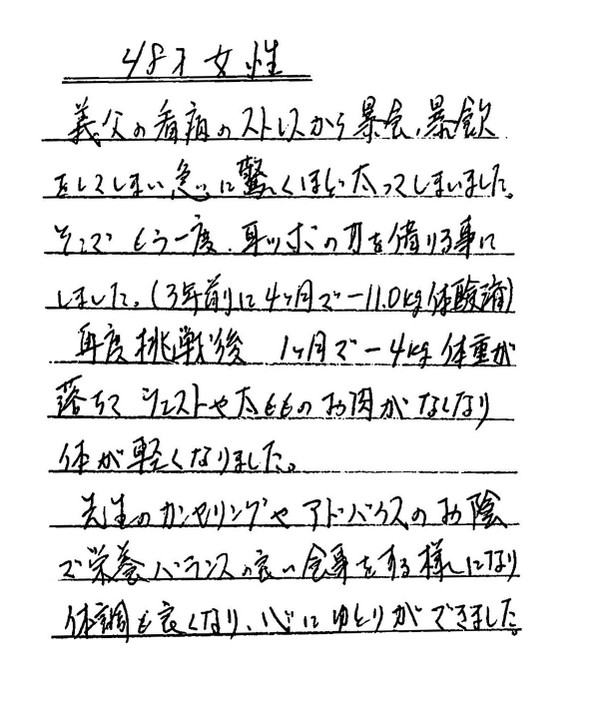 48才女性
義父の看病のストレスから暴食、暴飲
をしてしまい急に驚くほど太ってしまいました。
そこでもう一度、耳ツボの力を借りる事に
しました。(3年前に4ヶ月で-11.0kg体験済)
再度挑戦後 1ヶ月で-4kg体重が
落ちて ウエストや太もものお肉がなくなり
体が軽くなりました。
先生のカンセリングやアドバイスのお陰
で栄養バランスの良い食事をする様になり
体調も良くなり、心にゆとりができました。